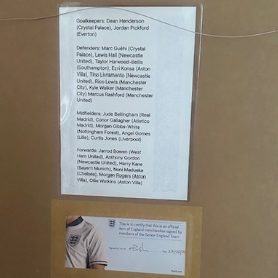 Goalkeepers: Dean Henderson
(Crystal Palace), Jordan Pickford
(Everton)
Defenders: Marc Guéhi (Crystal
Palace), Lewis Hall (Newcastle
United), Taylor Harwood-Bellis
(Southampton), Ezri Konsa (Aston
Villa), Tino Livramento (Newcastle
United), Rico Lewis (Manchester
City), Kyle Walker (Manchester
City) Marcus Rashford (Manchester
United)
Midfielders: Jude Bellingham (Real
Madrid), Conor Gallagher (Atletico
Madrid), Morgan Gibbs-White
(Nottingham Forest), Angel Gomes
(Lille), Curtis Jones (Liverpool)
Forwards: Jarrod Bowen (West
Ham United), Anthony Gordon
(Newcastle United), Harry Kane
(Bayern Munich), Noni Madueke
(Chelsea), Morgan Rogers (Aston
Villa), Ollie Watkins (Aston Villa)
This is to certify that this is an official
item of England merchandise signed by
members of the Senior England Team